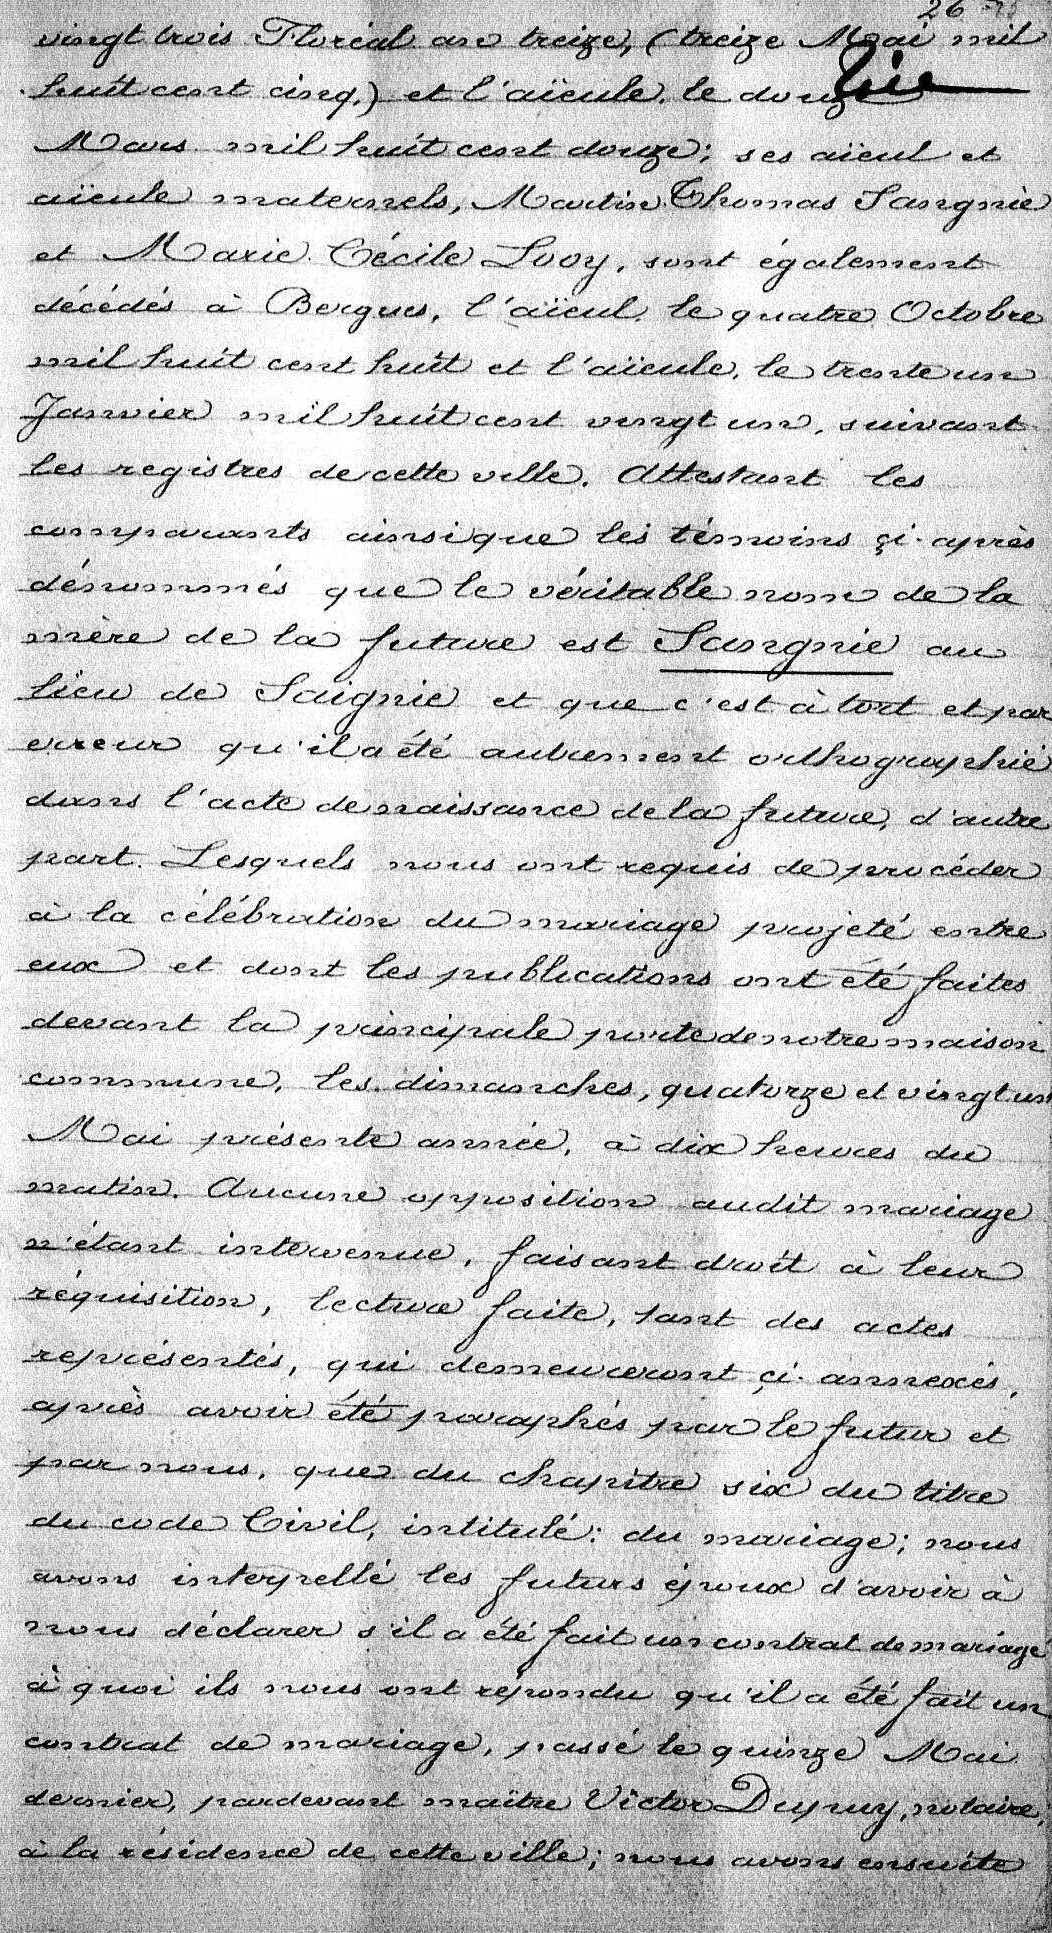 26
vingt trois Floréal an treize, (treize Mai mil
huit cent cinq,) et l'aïeule, le douze
Mars mil huit cent douze; ses aïeul et
aïeule maternels, Martin Thomas Sangnie
et Marie Cécile Looy, sont également
décédés à Bergues, l'aïeul, le quatre Octobre
mil huit cent huit et l'aïeule, le trente un
Janvier mil huit cent vingt un, suivant
les registres de cette ville. Attestant les
comparants ainsi que les témoins çi-après
dénommés que le véritable nom de la
mère de la future est Sangnie au
lieu de Saignie et que c'est à tort et par
erreur qu'il a été autrement orthographié
dans l'acte de naissance de la future, d'autre
part. Lesquels nous ont requis de procéder
à la célébration du mariage projeté entre
eux et dont les publications ont été faites
devant la principale porte de notre maison
commune, les dimanches, quatorze et vingt un
Mai présente année, à dix heures du
matin. Aucune opposition audit mariage
n'étant intervenue, faisant droit à leur
réquisition, lecture faite, tant des actes
représentés, qui demeureront çi-annexés,
après avoir été paraphés par le futur et
par nous, que du chapitre six du titre
du code Civil, intitulé: du mariage; nous
avons interpellé les futurs époux d'avoir à
nous déclarer s'il a été fait un contrat de mariage
à quoi ils nous ont répondu qu'il a été fait un
contrat de mariage, passé le quinze Mai
dernier, pardevant maître Victor Dupuy, notaire,
à la résidence de cette ville; nous avons ensuite